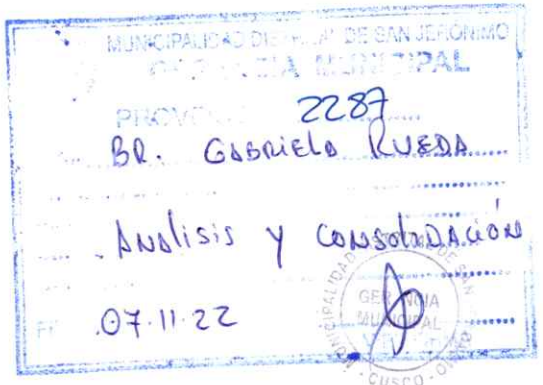 MUNICIPALIDAD DISTRITAL DE SAN JERÓNIMO
GERENCIA MUNICIPAL
PROVEIDO 2287
BR. GABRIELA RUEDA
ANALISIS Y CONSOLIDACIÓN
07.11.22
MUNICIPALIDAD DISTRITAL DE SAN
GERENCIA
MUNICIPAL
CUSCO